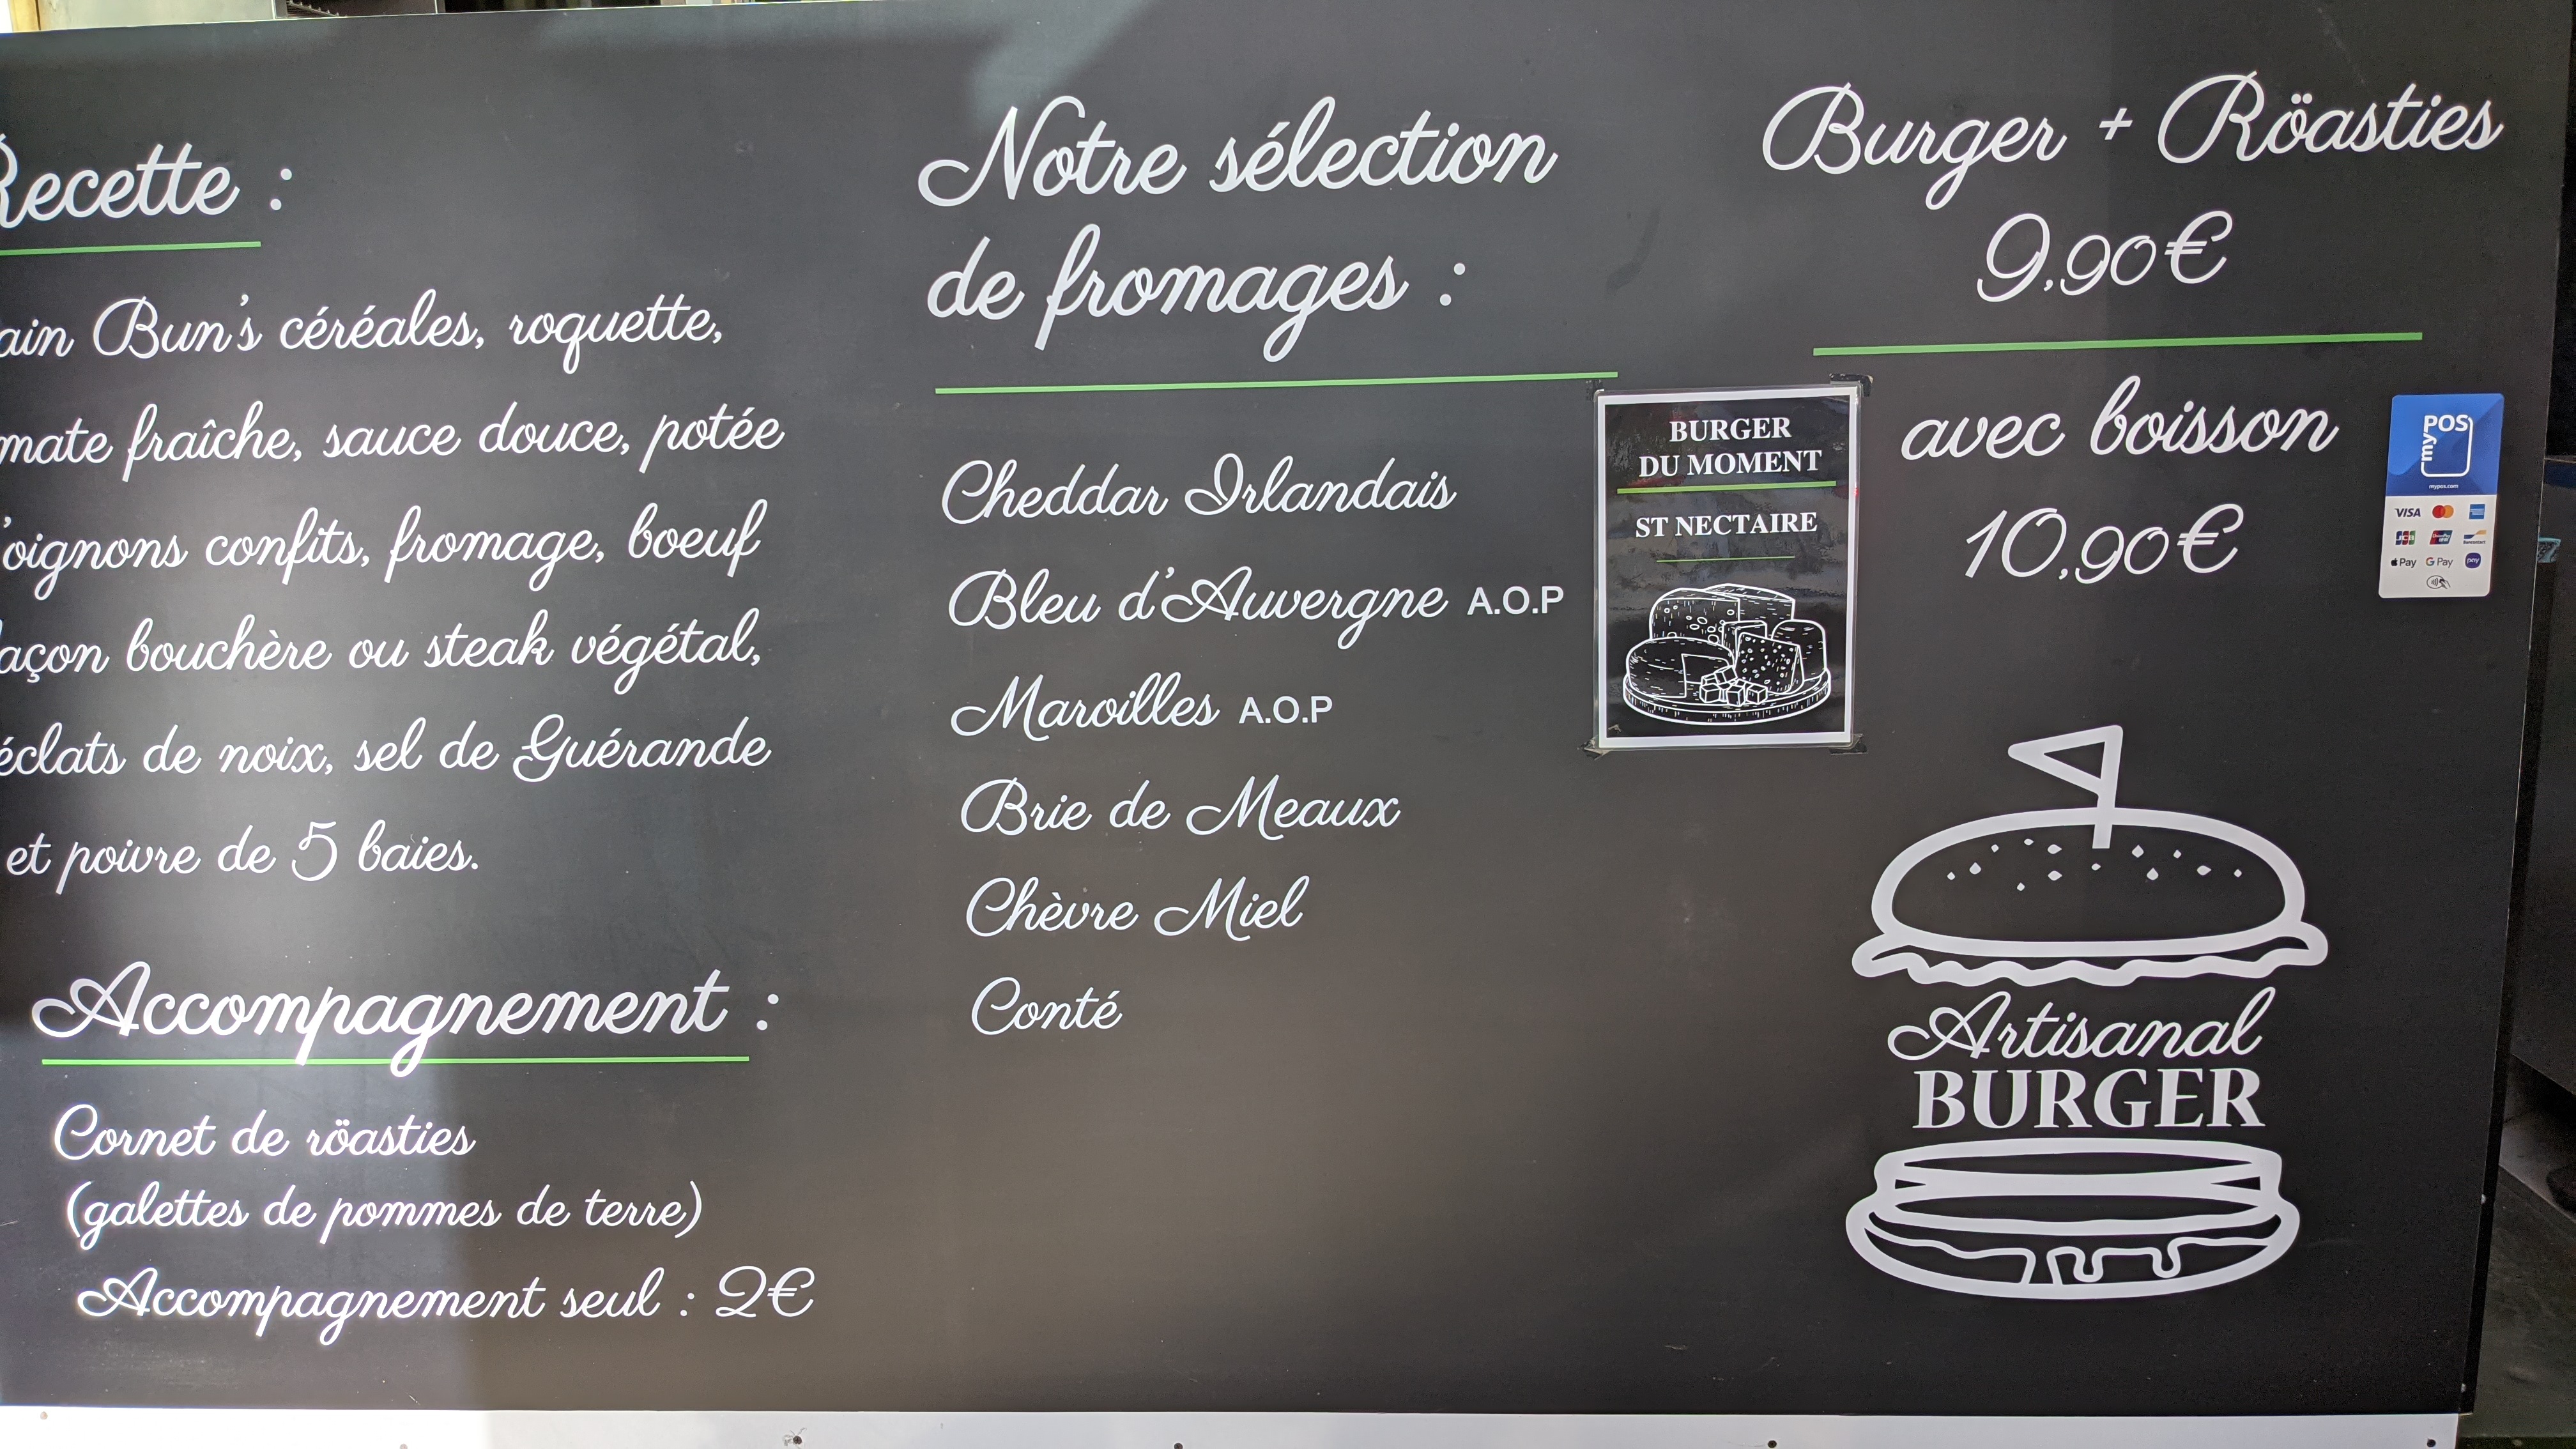 Recette :
ain Bun's céréales, roquette,
mate fraîche, sauce douce, potée
'oignons confits, fromage, boeuf
açon bouchère ou steak végétal,
éclats de noix, sel de Guérande
et poivre de 5 baies.
Accompagnement :
Cornet de röasties
(galettes de pommes de terre)
Accompagnement seul : 2€
Notre sélection
de fromages :
Cheddar Irlandais
Bleu d'Auvergne A.O.P
Maroilles A.O.P
Brie de Meaux
Chèvre Miel
Conté
BURGER
DU MOMENT
ST NECTAIRE
Burger + Röasties
9,90€
avec boisson
10,90€
myPOS
mypos.com
VISA
JCB
Bancontact
Pay G Pay pay
Artisanal
BURGER